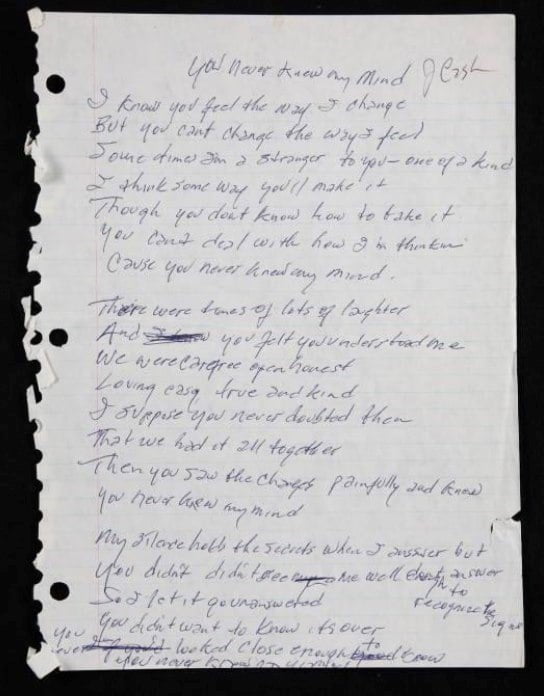 You Never Knew my Mind J Cash
I know you feel the way I change
But you cant change the way I feel
Some times Im a stranger to you - one of a kind
I think some way you'll make it
Though you dont know how to take it
You cant deal with how I'm thinkin
Cause you never knew my mind.
There were times of lots of laughter
And I know you felt you understood me
We were carefree open honest
Loving easy true and kind
I suppose you never doubted then
That we had it all together
Then you saw the changes painfully and knew
You never knew my mind
My silence holds the secrets when I answer but
You didnt didnt see me well enough answer
to
So I let it go unanswered recognize the signs
You didnt want to know its over
you never looked close enough to know
You never knew my mind